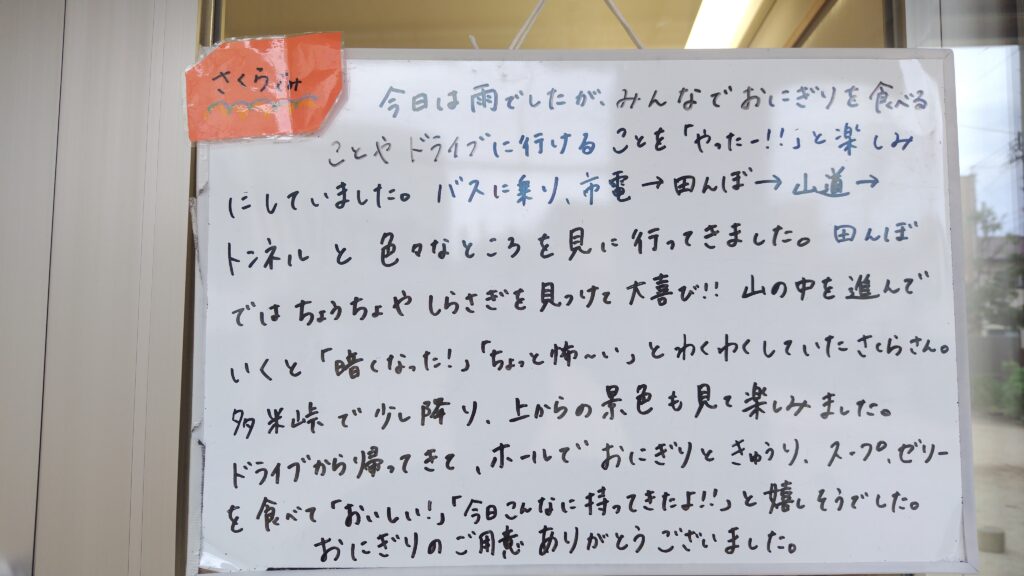 さくら組
今日は雨でしたが、みんなでおにぎりを食べる
ことやドライブに行けることを「やったー!!」と楽しみ
にしていました。バスに乗り、市電→田んぼ→山道→
トンネルと色々なところを見に行ってきました。田んぼ
ではちょうちょやしらさぎを見つけて大喜び!!山の中を進んで
いくと「暗くなった!」「ちょっと怖〜い」とわくわくしていたさくらさん。
多米峠で少し降り、上からの景色も見て楽しみました。
ドライブから帰ってきて、ホールでおにぎりときゅうり、スープ、ゼリー
を食べて「おいしい!」「今日こんなに持ってきたよ!!」と嬉しそうでした。
おにぎりのご用意ありがとうございました。